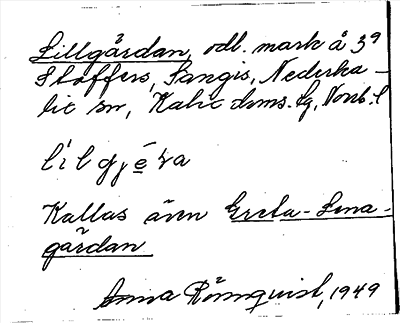 Lillgårdan, odl. mark å 39
Stoffers, Sangis, Nederka-
lix sn, Kalix doms. lg, Norrb. l
Kallas även Greta-Lena-
gårdan
Anna Rönnquist, 1949